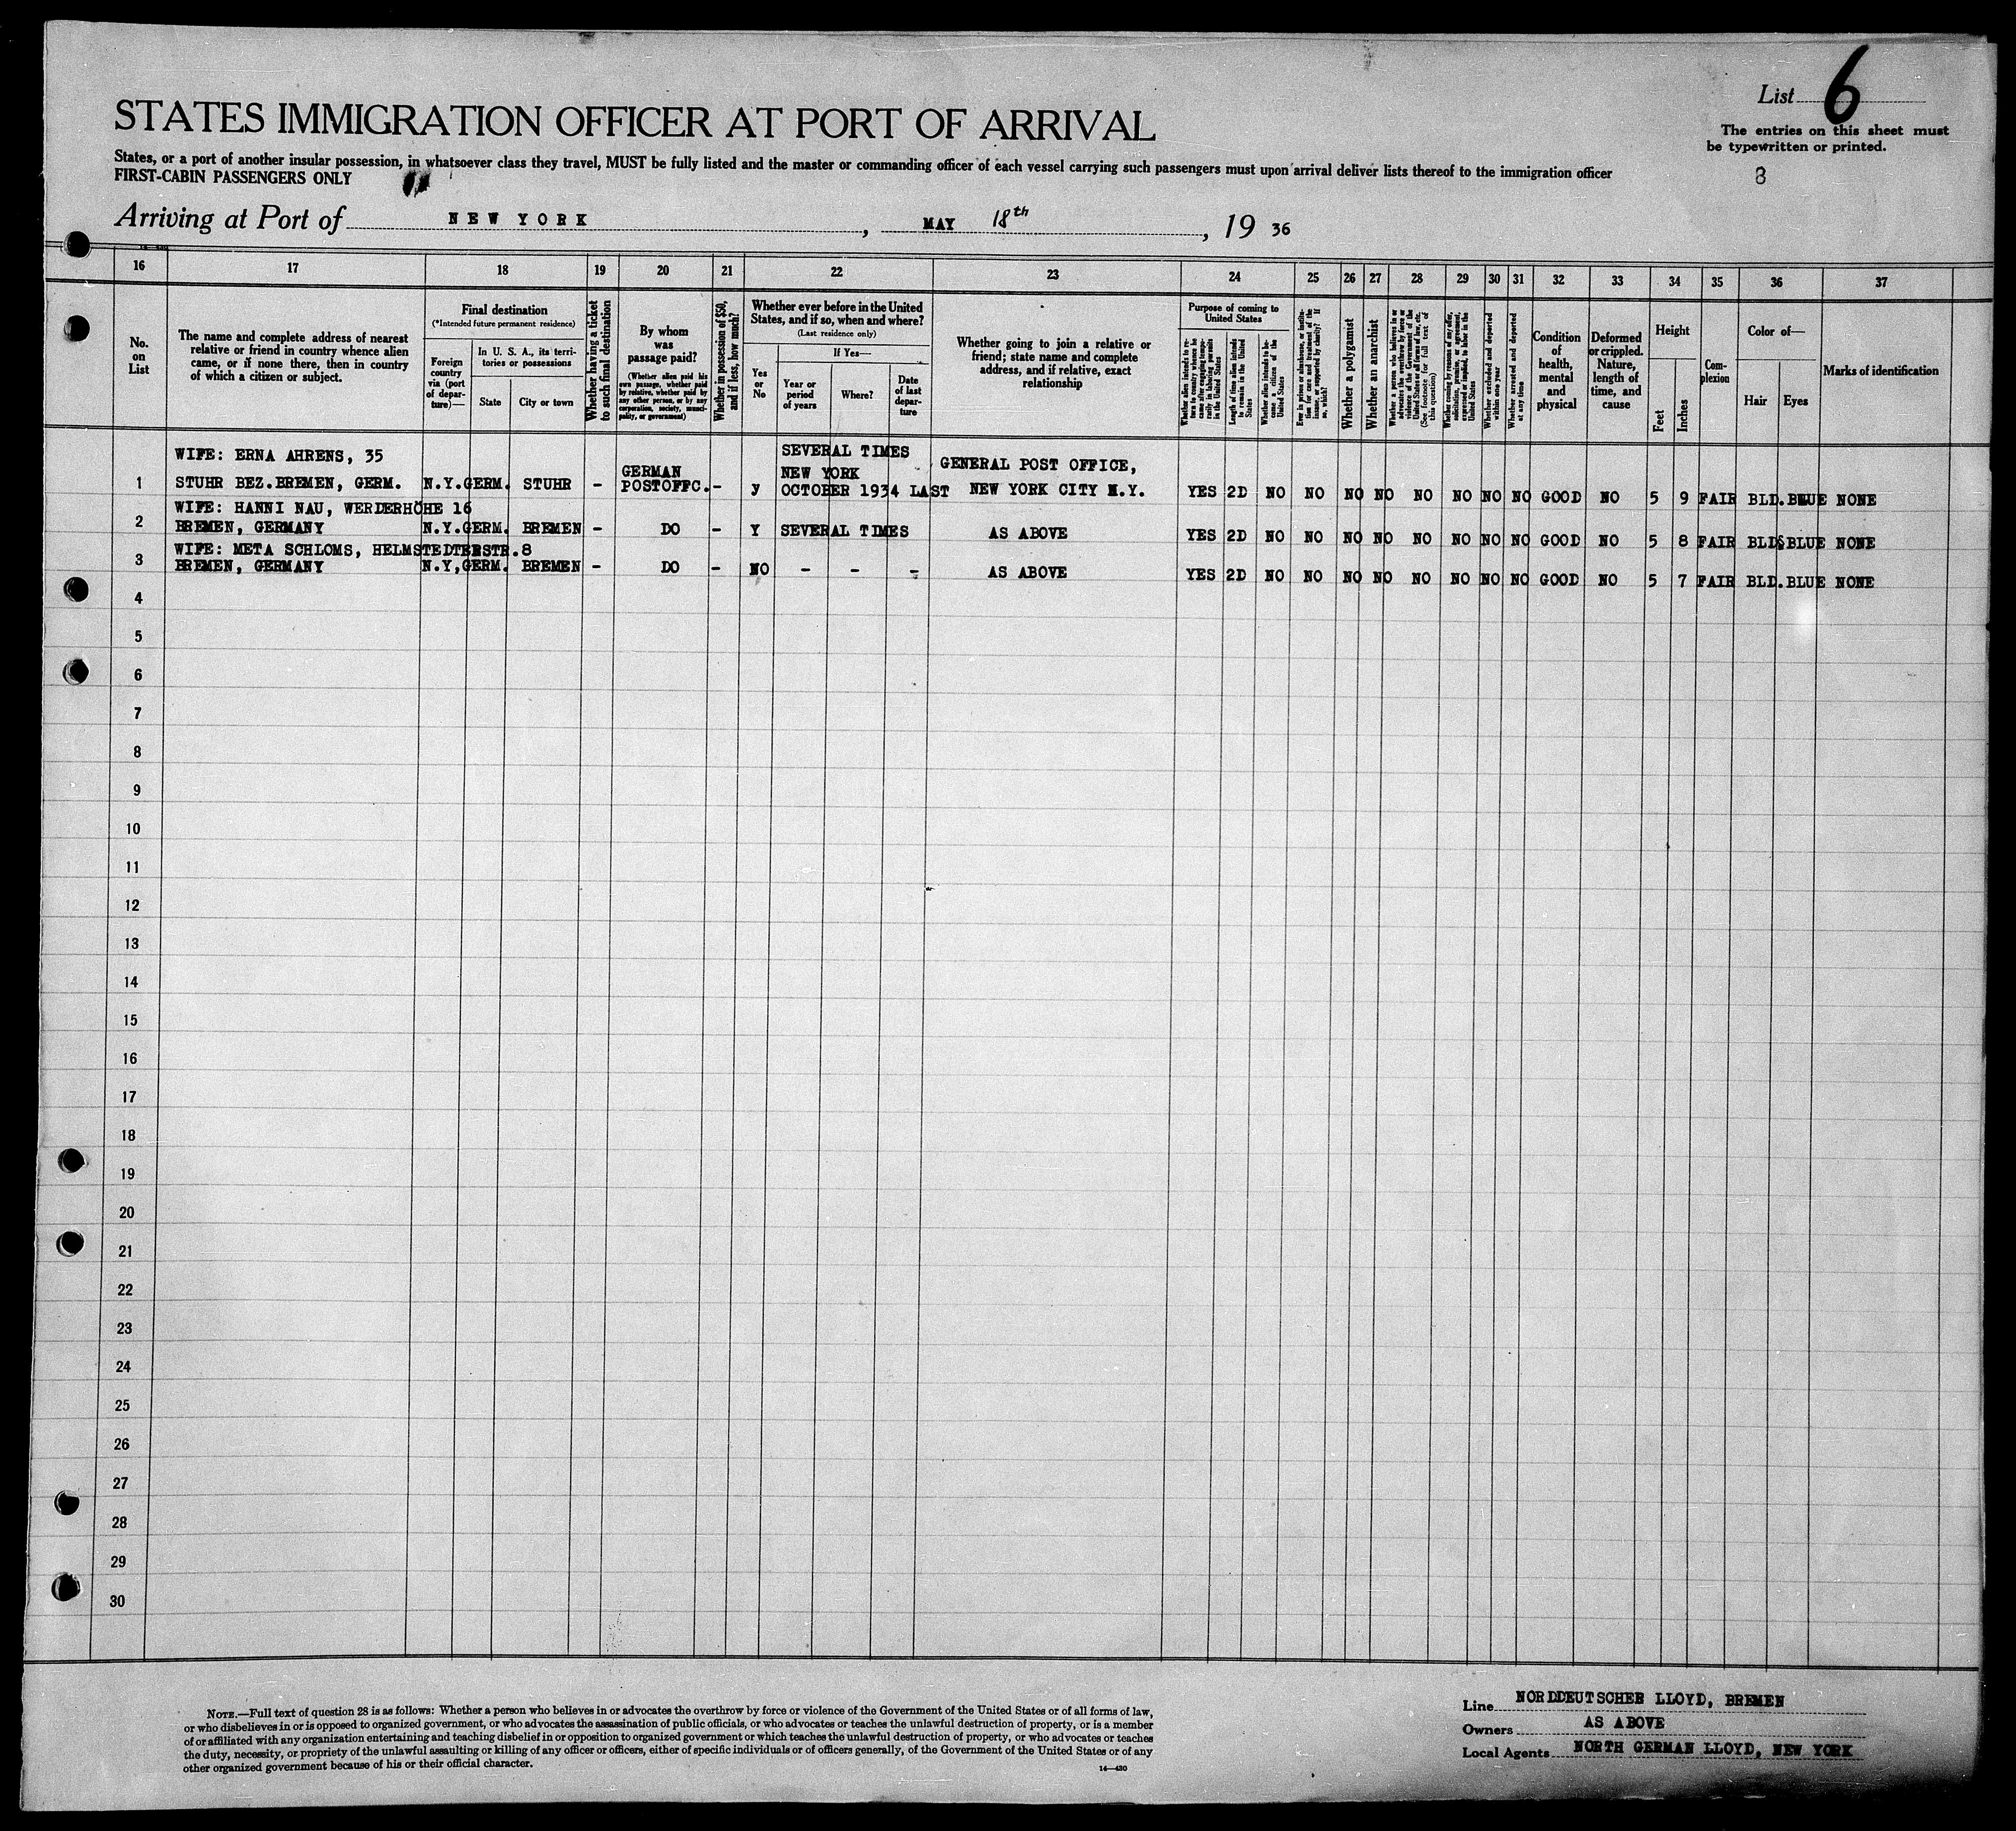 List 6
STATES IMMIGRATION OFFICER AT PORT OF ARRIVAL
The entries on this sheet must
be typewritten or printed.
States, or a port of another insular possession, in whatsoever class they travel, MUST be fully listed and the master or commanding officer of each vessel carrying such passengers must upon arrival deliver lists thereof to the immigration officer
FIRST-CABIN PASSENGERS ONLY
3
Arriving at Port of NEW YORK, MAY 18th, 19 36
16 17 18 19 20 21 22 23 24 25 26 27 28 29 30 31 32 33 34 35 36 37
No.
on
List
The name and complete address of nearest
relative or friend in country whence alien
came, or if none there, then in country
of which a citizen or subject.
Final destination
(*Intended future permanent residence)
Foreign
country
via (port
of depar-
ture)—
In U. S. A., its terri-
tories or possessions
State
City or town
Whether having a ticket
to such final destination
By whom
was
passage paid?
(Whether alien paid his
own passage, whether paid
by relative, whether paid by
any other person, or by any
corporation, society, munici-
pality, or government)
Whether in possession of $50,
and if less, how much?
Whether ever before in the United
States, and if so, when and where?
(Last residence only)
Yes
or
No
If Yes—
Year or
period
of years
Where?
Date
of last
depar-
ture
Whether going to join a relative or
friend; state name and complete
address, and if relative, exact
relationship
Purpose of coming to
United States
Whether alien intends to re-
turn to country whence he
came after engaging tempo-
rarily in laboring pursuits
in the United States
Length of time alien intends
to remain in the United
States
Whether alien intends to be-
come a citizen of the
United States
Ever in prison or almshouse, or institu-
tion for care and treatment of the
insane, or supported by charity? If
so, which?
Whether a polygamist
Whether an anarchist
Whether a person who believes in or
advocates the overthrow by force or
violence of the Government of the
United States or all forms of law, etc.
(See footnote for full text of
this question)
Whether coming by reason of any offer,
solicitation, promise, or agreement,
expressed or implied, to labor in the
United States
Whether excluded and deported
within one year
Whether arrested and deported
at any time
Condition
of
health,
mental
and
physical
Deformed
or crippled.
Nature,
length of
time, and
cause
Height
Feet
Inches
Com-
plexion
Color of—
Hair
Eyes
Marks of identification
WIFE: ERNA AHRENS, 35 SEVERAL TIMES
GERMAN NEW YORK GENERAL POST OFFICE,
1 STUHR BEZ.BREMEN, GERM. N.Y.GERM. STUHR - POSTOFFC. - y OCTOBER 1934 LAST NEW YORK CITY N.Y. YES 2D NO NO NO NO NO NO NO NO GOOD NO 5 9 FAIR BLD. BLUE NONE
WIFE: HANNI NAU, WERDERHÖHE 16
2 BREMEN, GERMANY N.Y.GERM. BREMEN - DO - Y SEVERAL TIMES AS ABOVE YES 2D NO NO NO NO NO NO NO NO GOOD NO 5 8 FAIR BLDS BLUE NONE
WIFE: META SCHLOMS, HELMSTEDTERSTR.8
3 BREMEN, GERMANY N.Y,GERM. BREMEN - DO - NO - - - AS ABOVE YES 2D NO NO NO NO NO NO NO NO GOOD NO 5 7 FAIR BLD. BLUE NONE
4
5
6
7
8
9
10
11
12
13
14
15
16
17
18
19
20
21
22
23
24
25
26
27
28
29
30
NOTE.—Full text of question 28 is as follows: Whether a person who believes in or advocates the overthrow by force or violence of the Government of the United States or of all forms of law,
or who disbelieves in or is opposed to organized government, or who advocates the assassination of public officials, or who advocates or teaches the unlawful destruction of property, or is a member
of or affiliated with any organization entertaining and teaching disbelief in or opposition to organized government or which teaches the unlawful destruction of property, or who advocates or teaches
the duty, necessity, or propriety of the unlawful assaulting or killing of any officer or officers, either of specific individuals or of officers generally, of the Government of the United States or of any
other organized government because of his or their official character.
14—430
Line NORDDEUTSCHER LLOYD, BREMEN
Owners AS ABOVE
Local Agents NORTH GERMAN LLOYD, NEW YORK